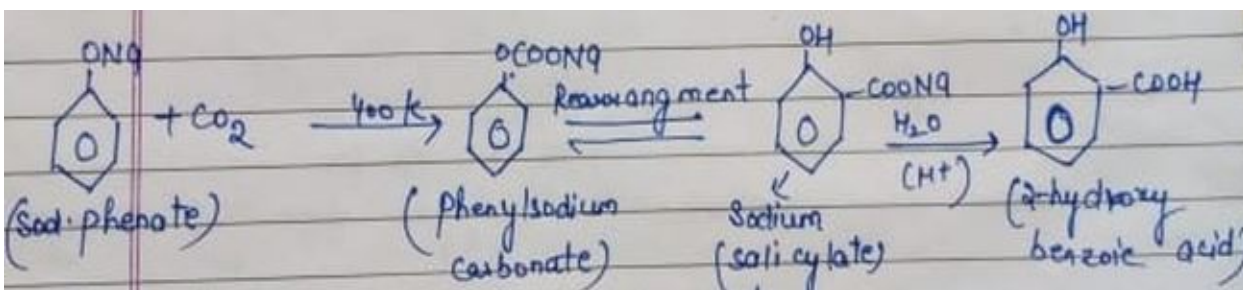 ONa OCOONa OH OH
+ CO2 400 K Rearrangment COONa H2O (H+) COOH
(Sod. phenate) (Phenylsodium carbonate) Sodium (salicylate) (2-hydroxy benzoic acid)